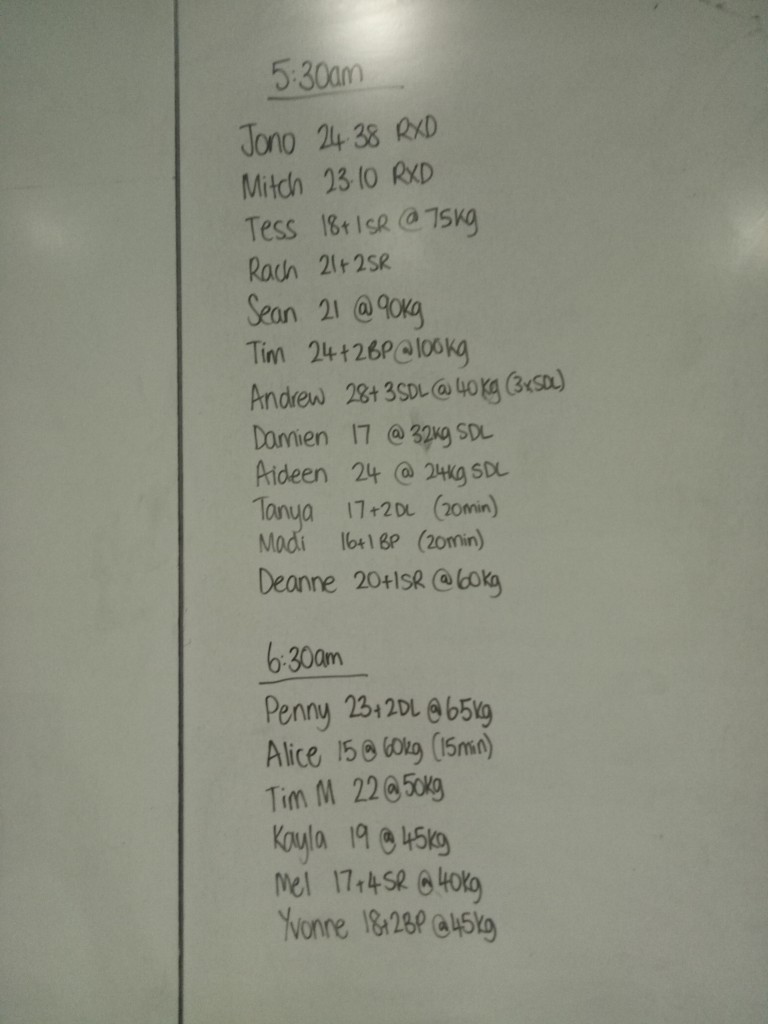 5:30am
Jono 24.38 RXD
Mitch 23.10 RXD
Tess 18+1SR @ 75kg
Rach 21+2SR
Sean 21 @ 90kg
Tim 24+2BP @ 100kg
Andrew 28+3SDL @ 40kg (3xSDL)
Damien 17 @ 32kg SDL
Aideen 24 @ 24kg SDL
Tanya 17+2DL (20min)
Madi 16+1BP (20min)
Deanne 20+1SR @ 60kg
6:30am
Penny 23+2DL @ 65kg
Alice 15 @ 60kg (15min)
Tim M 22 @ 50kg
Kayla 19 @ 45kg
Mel 17+4SR @ 40kg
Yvonne 18+2BP @ 45kg